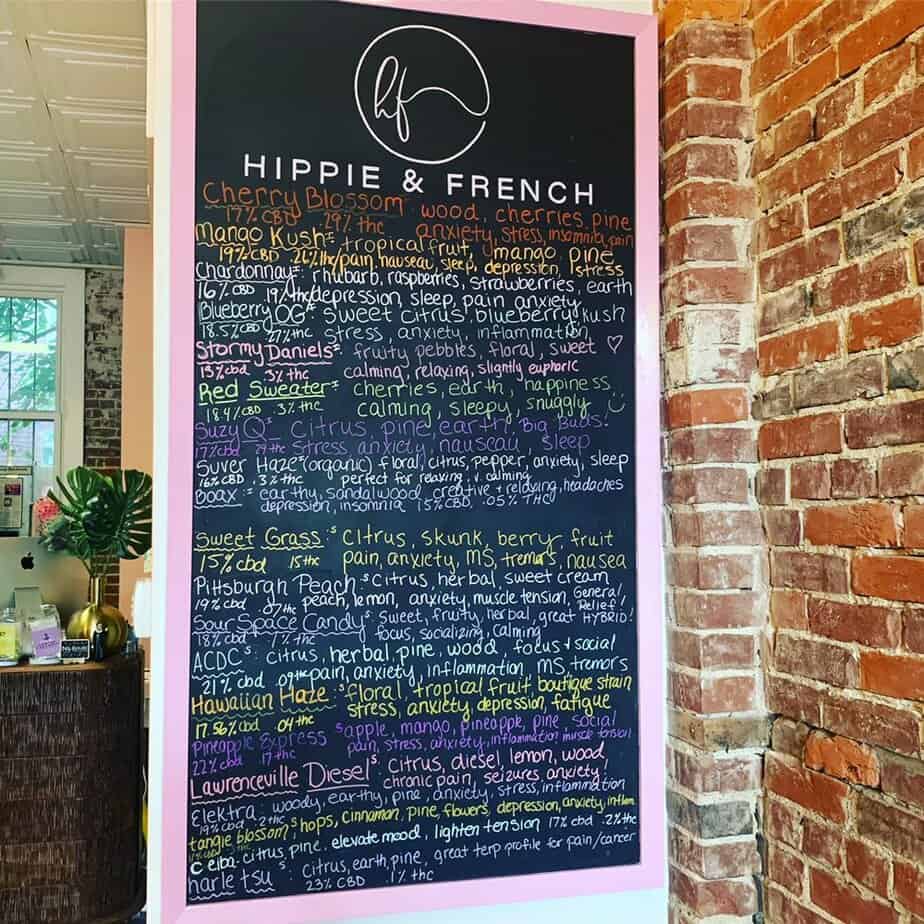 hf
HIPPIE & FRENCH
Cherry Blossom wood, cherries, pine
17% CBD .29% thc anxiety, stress, insomnia, pain
Mango Kush: tropical fruit, mango, pine
19% CBD .26% thc/pain, nauseau, sleep, depression, stress
Chardonnay: rhubarb, raspberries, strawberries, earth
16% CBD .19% thc/depression, sleep, pain anxiety
Blueberry OG: sweet citrus, blueberry, kush
18.5% CBD .27% thc stress, anxiety, inflammation
Stormy Daniels: fruity pebbles, floral, sweet ♡
13% cbd .3% thc calming, relaxing, slightly euphoric
Red Sweater: cherries, earth, happiness
18.4% CBD .3% thc calming, sleepy, snuggly
Suzy Q: Citrus, pine, earth, Big Buds!
17% cbd .29 thc stress, anxiety, nauseau, sleep
Suver Haze (organic) floral, citrus, pepper, anxiety, sleep
16% CBD .3% thc perfect for relaxing, v. calming
boax: earthy, sandalwood, creative + relaxing, headaches
depression, insomnia 15% CBD, .05% THC
Sweet Grass: s citrus, skunk, berry, fruit
15% cbd .15 thc pain, anxiety, MS, tremors, nausea
Pittsburgh Peach s citrus, herbal, sweet cream
19% cbd .07 thc peach, lemon, anxiety, muscle tension, General Relief!
Sour Space Candy s: Sweet, fruity, herbal, great HYBRID!
18% cbd .1% thc focus, socializing, calming
ACDC s: citrus, herbal pine, wood, focus + social
21% cbd .09 thc pain, anxiety, inflammation, MS, tremors
Hawaiian Haze: s floral, tropical fruit, boutique strain
17.56% cbd .04 thc stress, anxiety, depression, fatigue
Pineapple Express s apple, mango, pineapple, pine, social
22% cbd .17 thc pain, stress, anxiety, inflammation muscle tension
Lawrenceville Diesel s: citrus, diesel, lemon, wood
chronic pain, seizures, anxiety!
Elektra: woody, earthy, pine, anxiety, stress, inflammation
19% cbd .2 thc
tangie blossom s hops, cinnamon, pine, flowers, depression, anxiety, inflam
Ceiba: citrus, pine, elevate mood, lighten tension 17% cbd .2% thc
harle tsu s: citrus, earth, pine, great terp profile for pain/cancer
23% CBD .1% thc